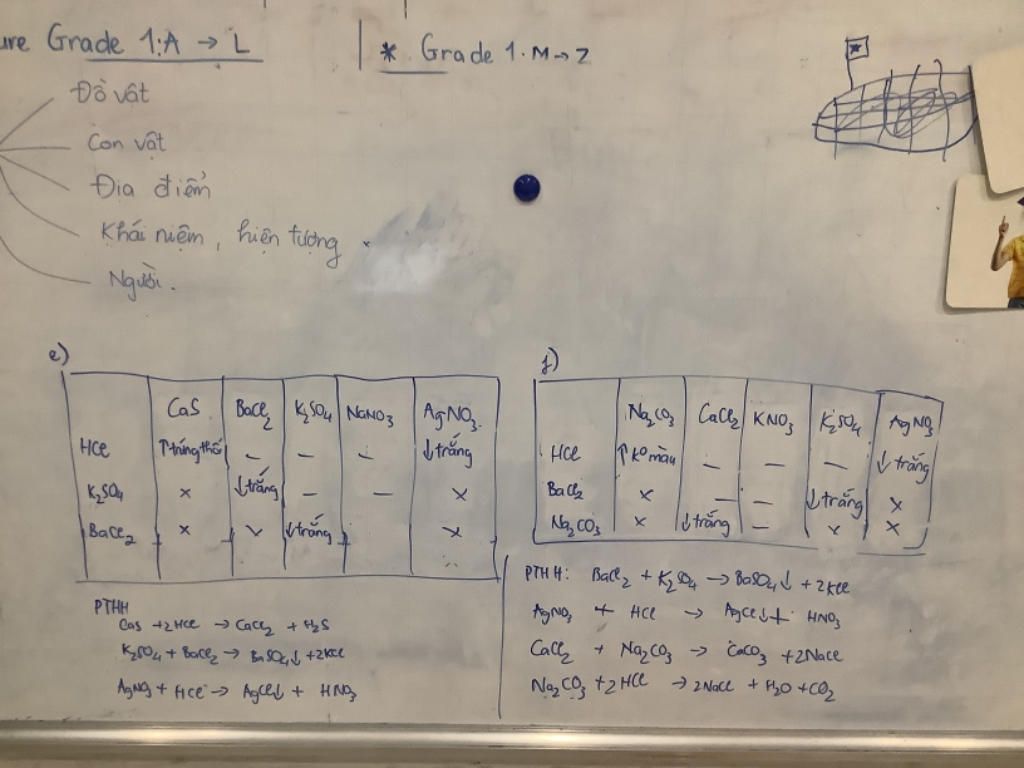 ure Grade 1:A → L
* Grade 1. M → Z
Đồ vật
Con vật
Địa điểm
Khái niệm, hiện tượng
Người.
e)
CaS BaCl2 K2SO4 NaNO3 AgNO3.
HCl ↑ trứng thối – – – ↓ trắng
K2SO4 x ↓ trắng – – x
BaCl2 x x ↓ trắng x
PTHH
CaS + 2HCl → CaCl2 + H2S
K2SO4 + BaCl2 → BaSO4↓ + 2KCl
AgNO3 + HCl → AgCl↓ + HNO3
f)
Na2CO3 CaCl2 KNO3 K2SO4 AgNO3
HCl ↑ ko màu – – – ↓ trắng
BaCl2 x – – ↓ trắng x
Na2CO3 x ↓ trắng – x x
PTHH: BaCl2 + K2SO4 → BaSO4↓ + 2KCl
AgNO3 + HCl → AgCl↓ + HNO3
CaCl2 + Na2CO3 → CaCO3 + 2NaCl
Na2CO3 + 2HCl → 2NaCl + H2O + CO2